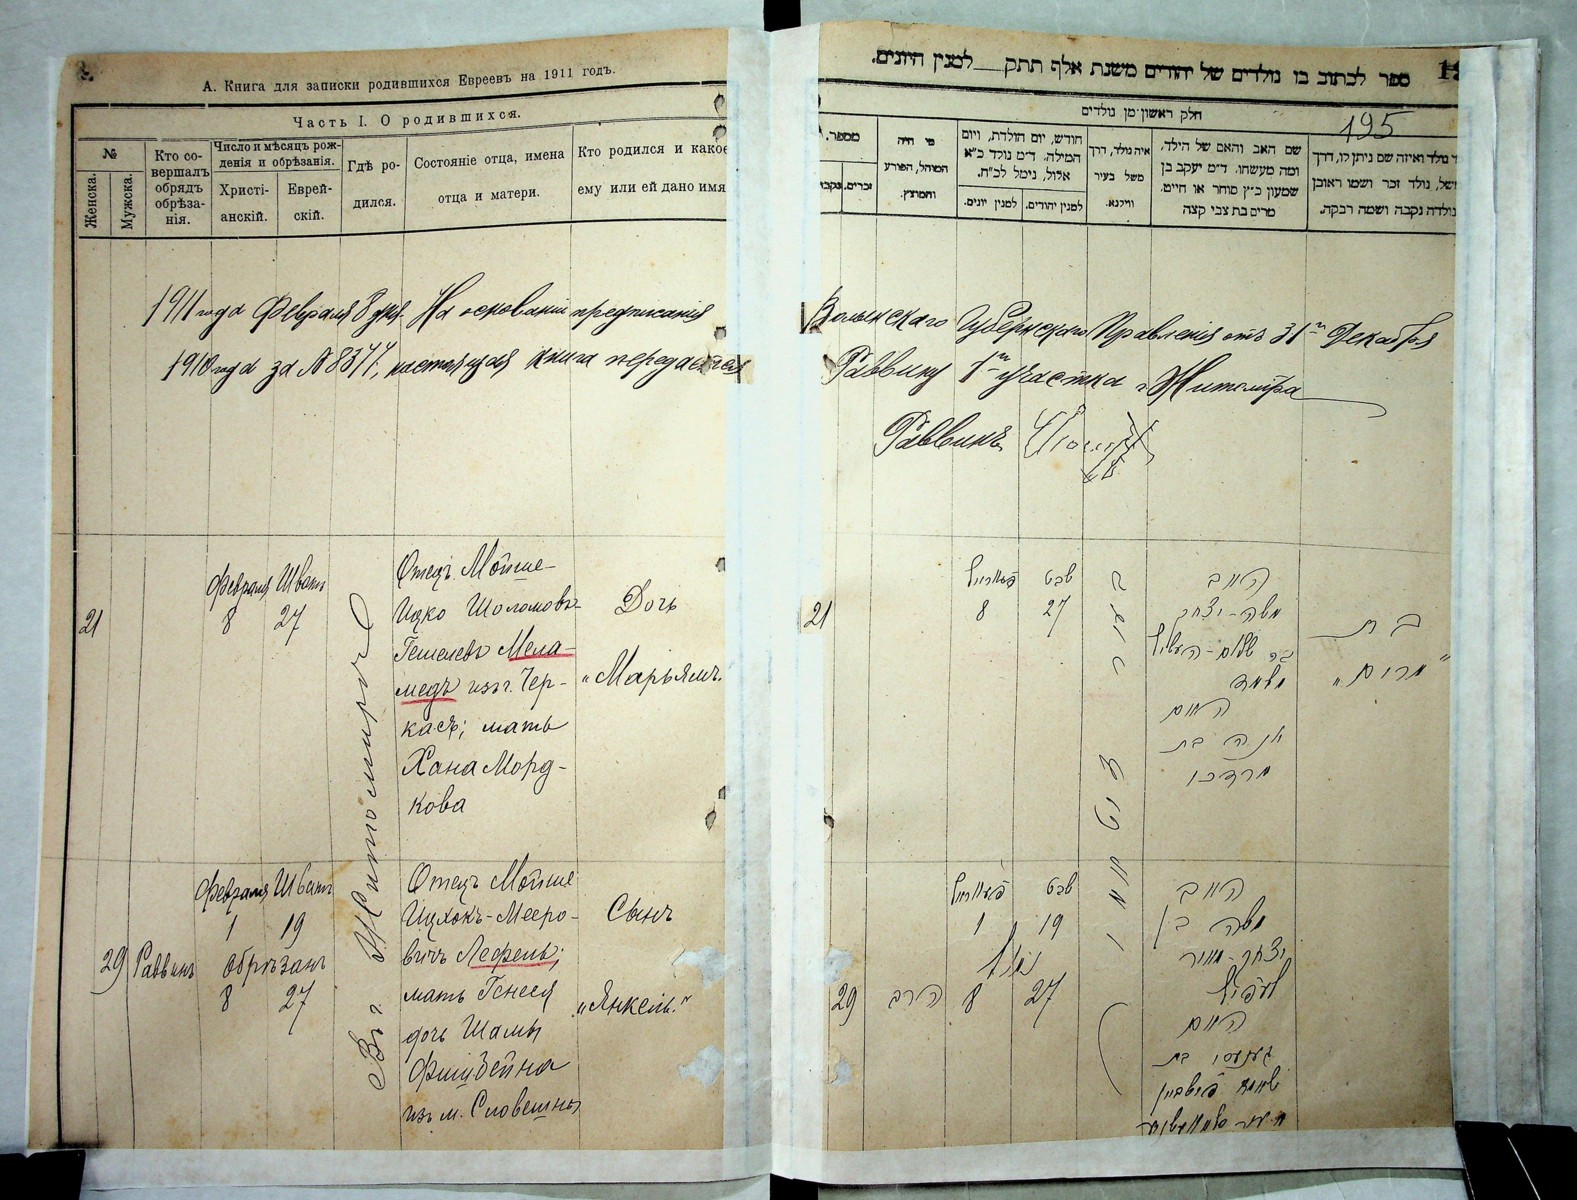 А. Книга для записки родившихся Евреевъ на 1911 годъ.
Часть I. О родившихся.
№
Женска.
Мужска.
Кто со-
вершалъ
обрядъ
обрѣза-
нія.
Число и мѣсяцъ рож-
денія и обрѣзанія.
Христі-
анскій.
Еврей-
скій.
Гдѣ ро-
дился.
Состояніе отца, имена
отца и матери.
Кто родился и какое
ему или ей дано имя
1911 года Февраля 8 дня. На основаніи предписанія
1910 года за № 8377, настоящая книга передается
21
Февраля Шватъ
8 27
Въ г. Житомирѣ
Отецъ Мойше-
Ицко Шоломовъ-
Гешелевъ Мела-
медъ изъ г. Чер-
касъ; мать
Хана Морд-
кова
Дочь
„Марьямъ.
29
Раввинъ
Февраля Шватъ
1 19
обрѣзанъ
8 27
Отецъ Мойше
Ицхокъ-Мееро-
вичъ Лефель;
мать Генеся
дочь Шамы
Фишбейна
изъ м. Словешны
Сынъ
„Янкель."
ספר לכתוב בו נולדים של יהודים משנת אלף תתק___למנין היונים.
195
חלק ראשון מן נולדים
מספר.
זכרים.
מי היה
המוהל, הפורע
והמוצץ.
חודש, יום הולדת, ויום
המילה. ד״מ נולד כ״א
אלול, נימל לכ״ח.
למנין יונים.
למנין יהודים.
איה נולד, דרך
משל בעיר
ווילנא.
שם האב והאם של הילד,
ומה מעשהו. ד״מ יעקב בן
שמעון כ״ץ סוחר או חייט.
מרים בת צבי קצה
נולד ואיזה שם ניתן לו, דרך
משל, נולד זכר ושמו ראובן
נולדה נקבה ושמה רבקה.
Волынскаго Губернскаго Правленія отъ 31го Декабря
Раввину 1го участка г. Житомира
Раввинъ
21
8
שבט
27
בעיר
זיטאמיר
האב
משה-יצחק
מלמד
האם
חנה בת
מרדכי
בת
„מרים"
29
הרב
1
שבט
19
נימול
8 27
האב
משה בן
יצחק-מאיר
לעפיל
האם
גענעסי בת
פישביין